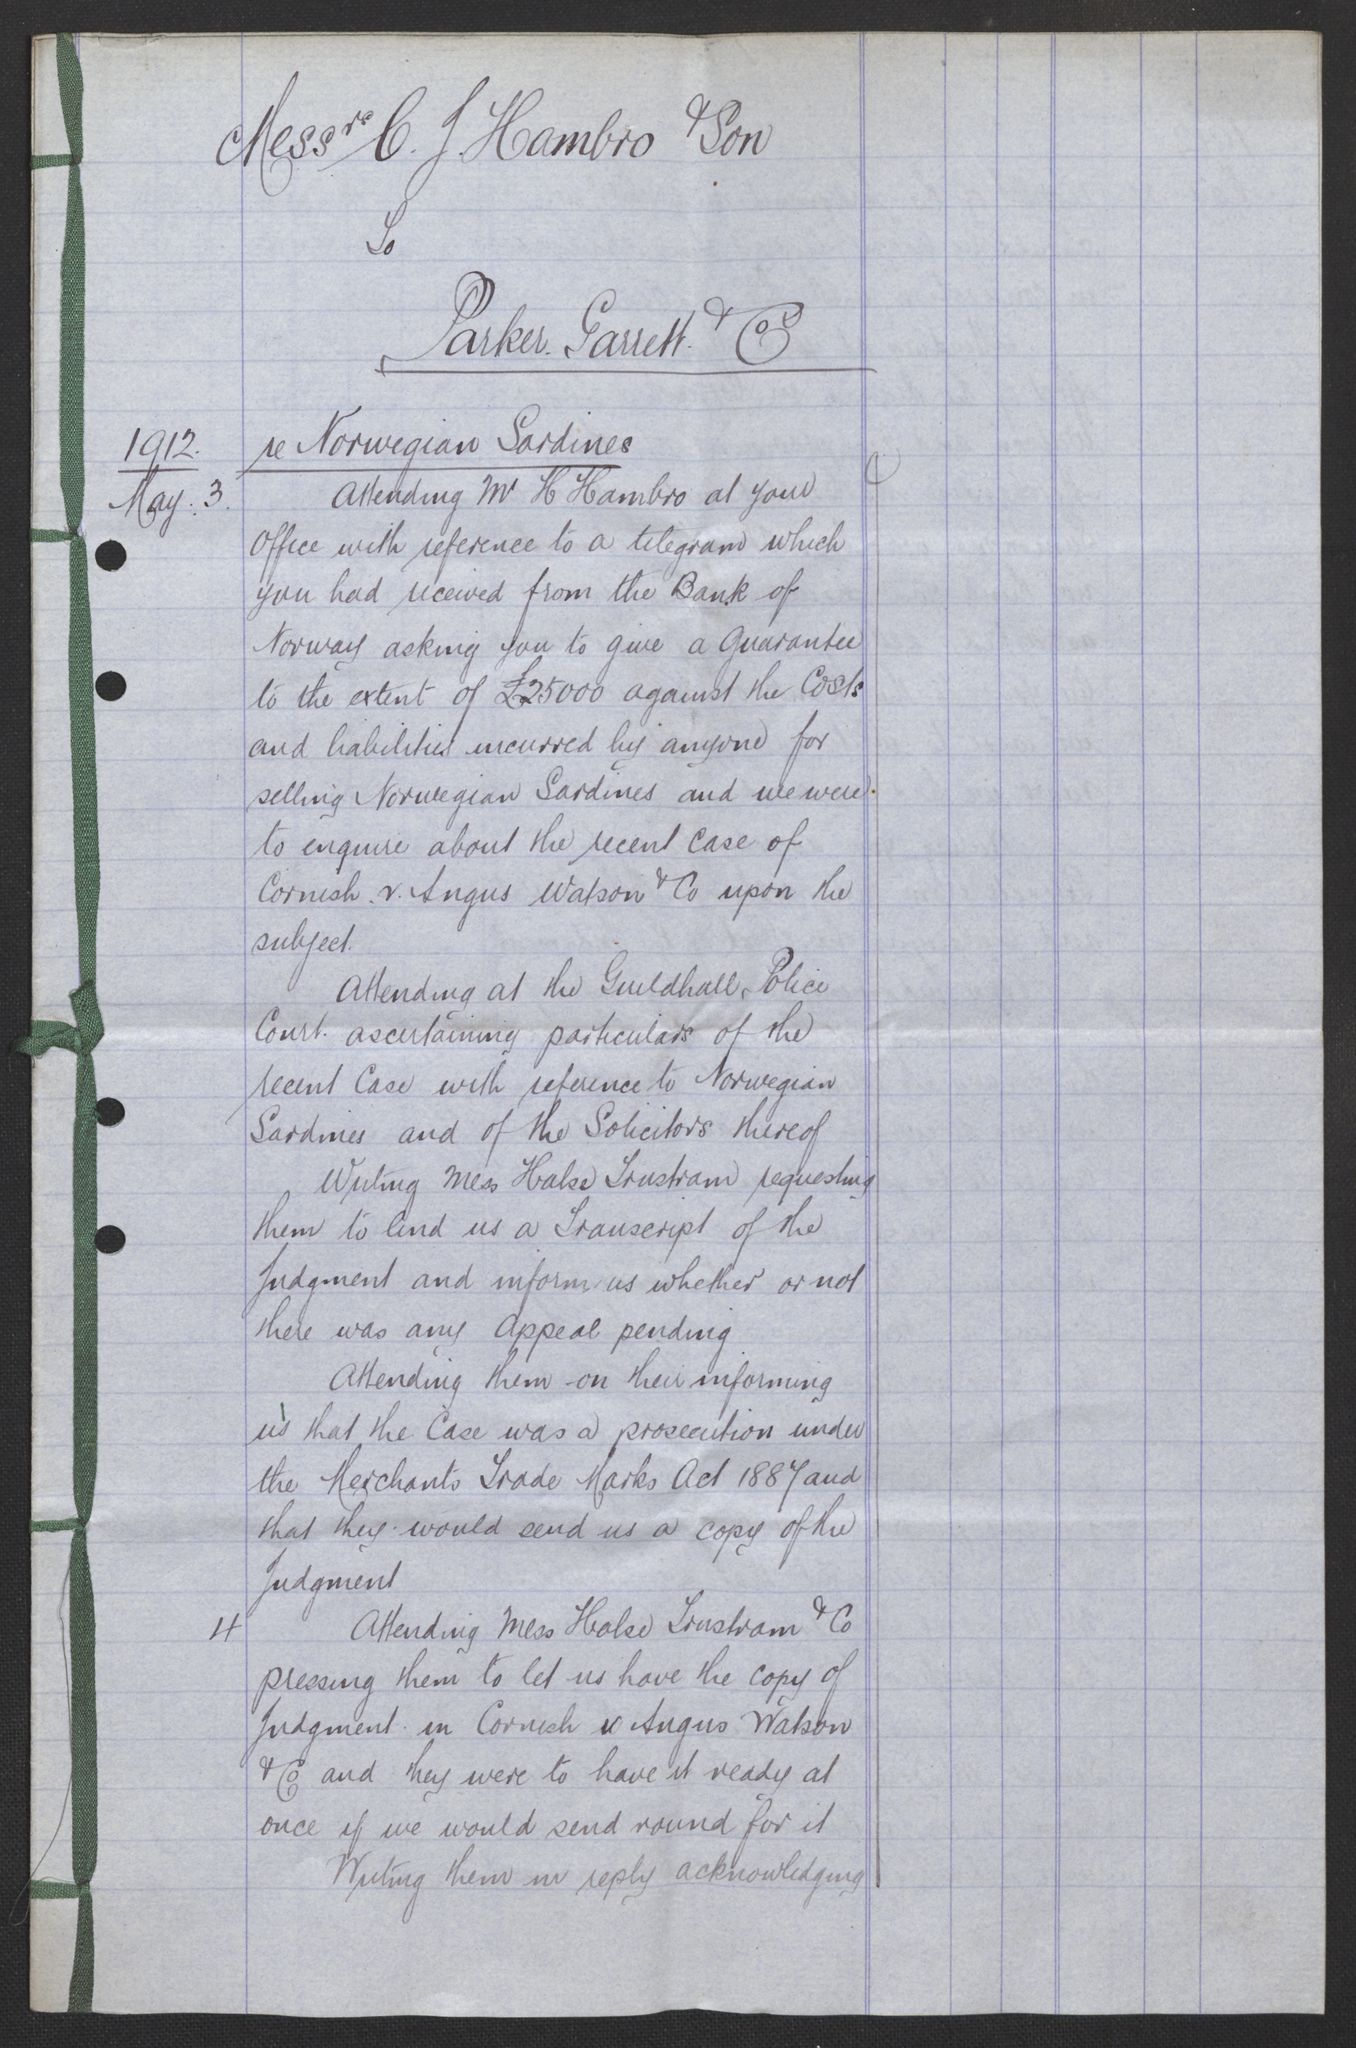 Messrs C. J. Hambro & Son
To
Parker. Garrett. & Co
1912. re Norwegian Sardines
May. 3. Attending Mr H Hambro at your
Office with reference to a telegram which
you had received from the Bank of
Norway asking you to give a Guarantee
to the extent of £25000 against the Costs
and liabilities incurred by anyone for
selling Norwegian Sardines and we were
to enquire about the recent case of
Cornish. v. Angus Watson & Co upon the
subject.
Attending at the Guildhall Police
Court. ascertaining particulars of the
recent Case with reference to Norwegian
Sardines and of the Solicitors thereof
Writing Mess Halse Trustram requesting
them to lend us a Transcript of the
Judgment and inform us whether or not
there was any Appeal pending
Attending them on their informing
us that the Case was a prosecution under
the Merchants Trade Marks Act 1887 and
that they would send us a copy of the
Judgment
4 Attending Mess Halse Trustram & Co
pressing them to let us have the copy of
Judgment in Cornish v Angus Watson
& Co and they were to have it ready at
once if we would send round for it
Writing them in reply acknowledging